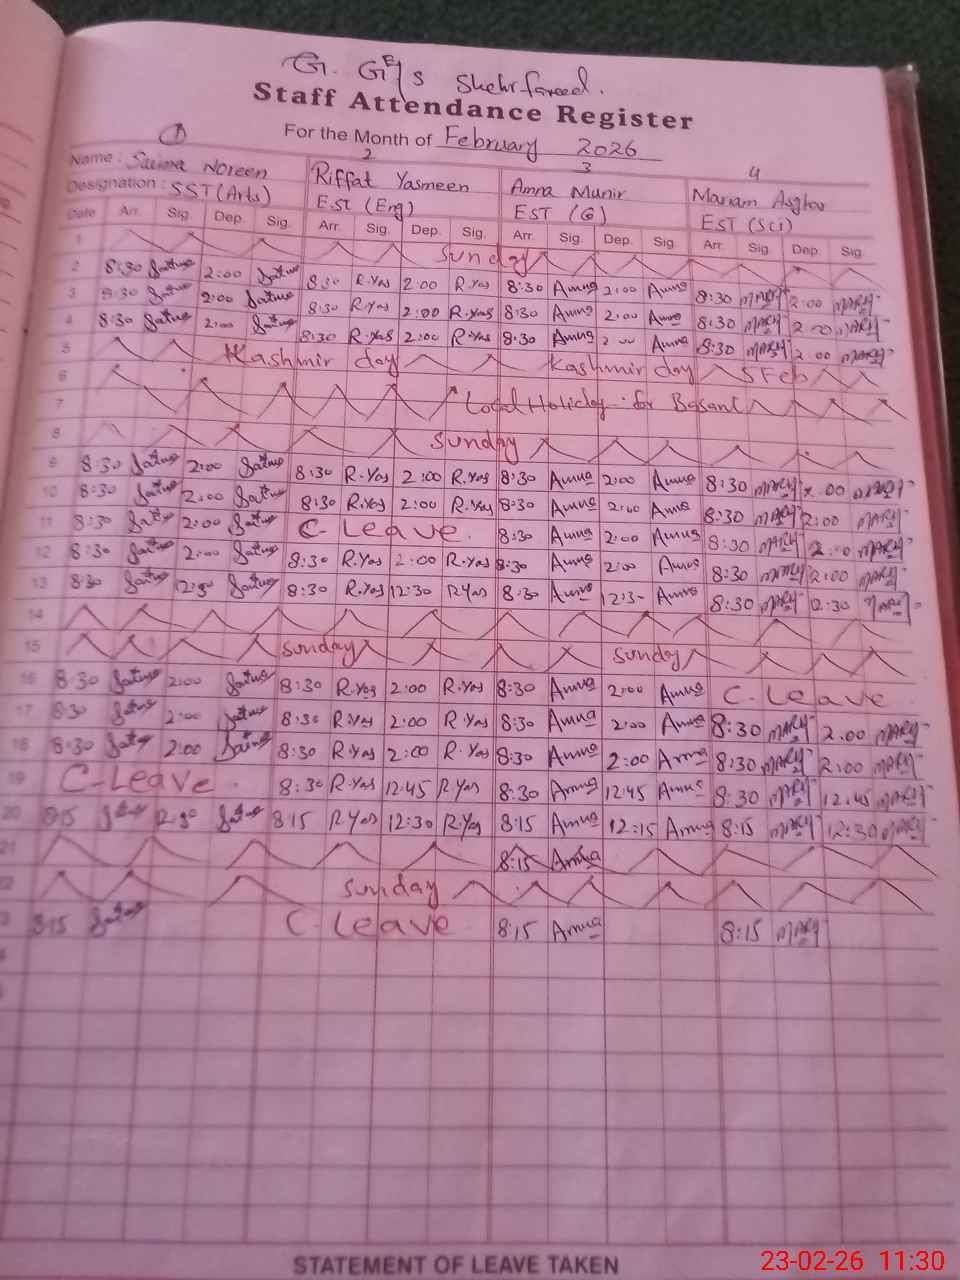 G. GE/S Shehr fareed.
Staff Attendance Register
For the Month of February 2026
1 2 3 4
Name: Saima Noreen Riffat Yasmeen Amna Munir Mariam Asghar
Designation: SST (Arts) EST (Eng) EST (G) EST (Sci)
Date Arr. Sig. Dep. Sig. Arr. Sig. Dep. Sig. Arr. Sig. Dep. Sig. Arr. Sig. Dep. Sig.
1 Sunday
2 8:30 2:00 8:30 R.Yas 2:00 R.Yas 8:30 Amna 2:00 Amna 8:30 MARY 2:00 MARY
3 8:30 2:00 8:30 R.Yas 2:00 R.Yas 8:30 Amna 2:00 Amna 8:30 MARY 2:00 MARY
4 8:30 2:00 8:30 R.Yas 2:00 R.Yas 8:30 Amna 2:00 Amna 8:30 MARY 2:00 MARY
5 Kashmir day Kashmir day 5 Feb
6
7 Local Holiday for Basant
8 Sunday
9 8:30 2:00 8:30 R.Yas 2:00 R.Yas 8:30 Amna 2:00 Amna 8:30 MARY 2:00 MARY
10 8:30 2:00 8:30 R.Yas 2:00 R.Yas 8:30 Amna 2:00 Amna 8:30 MARY 2:00 MARY
11 8:30 2:00 C-Leave. 8:30 Amna 2:00 Amna 8:30 MARY 2:00 MARY
12 8:30 2:00 8:30 R.Yas 2:00 R.Yas 8:30 Amna 2:00 Amna 8:30 MARY 2:00 MARY
13 8:30 12:30 8:30 R.Yas 12:30 R.Yas 8:30 Amna 12:30 Amna 8:30 MARY 12:30 MARY
14
15 Sunday Sunday
16 8:30 2:00 8:30 R.Yas 2:00 R.Yas 8:30 Amna 2:00 Amna C-Leave
17 8:30 2:00 8:30 R.Yas 2:00 R.Yas 8:30 Amna 2:00 Amna 8:30 MARY 2:00 MARY
18 8:30 2:00 8:30 R.Yas 2:00 R.Yas 8:30 Amna 2:00 Amna 8:30 MARY 2:00 MARY
19 C-Leave. 8:30 R.Yas 12:45 R.Yas 8:30 Amna 12:45 Amna 8:30 MARY 12:45 MARY
20 8:15 12:30 8:15 R.Yas 12:30 R.Yas 8:15 Amna 12:15 Amna 8:15 MARY 12:30 MARY
21 8:15 Amna
22 Sunday
23 8:15 C-Leave. 8:15 Amna 8:15 MARY
STATEMENT OF LEAVE TAKEN
23-02-26 11:30